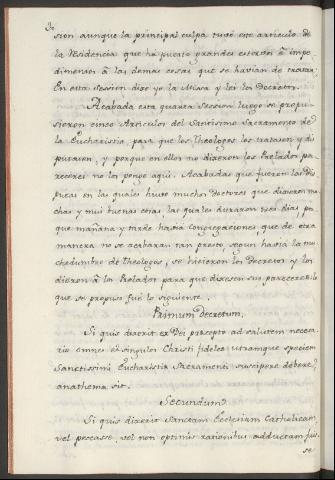 sion aunque la principal culpa tuvo este articulo de
la Residencia que há puesto grandes estorvos è impe
dimentos à las demas cosas que se havian de tratar.
En esta session dixo yo la Missa y lei los Decretos.
Acabada esta quarta Session luego se propu-
sieron cinco Articulos del Santisimo Sacramento de
la Eucharistia, para que los Theologos los tratasen y dis
putasen, y porque en ellos no dixeron los Prelados pa-
receres no los pongo aqui. Acabadas que fueron las Dis
putas en las quales huvo muchos Doctores que dixeron mu
chas y mui buenas cosas, las quales duraron dias, por
que mañana y tarde havia Congregaciones que de otra
manera no se acabaran tan presto segun havia la mu
chedumbre de Theologos, se hicieron los Decretos y los
dieron à los Prelados para que dixesen sus pareceres: lo
que se propuso fuè lo siguiente.
Primum Decretum.
Si quis dixerit ex Dei precepto ad salutem necesa
rio omnes et singulos Christi fideles utramque speciem
Santissimi Eucharistiæ Sacramenti suscipere debere,
anathema sit.
Secundum
Si quis dixerit Sanctam Ecclesiam Catholicam
vel pecasse, vel non optimis rationibus adductam fuis
se